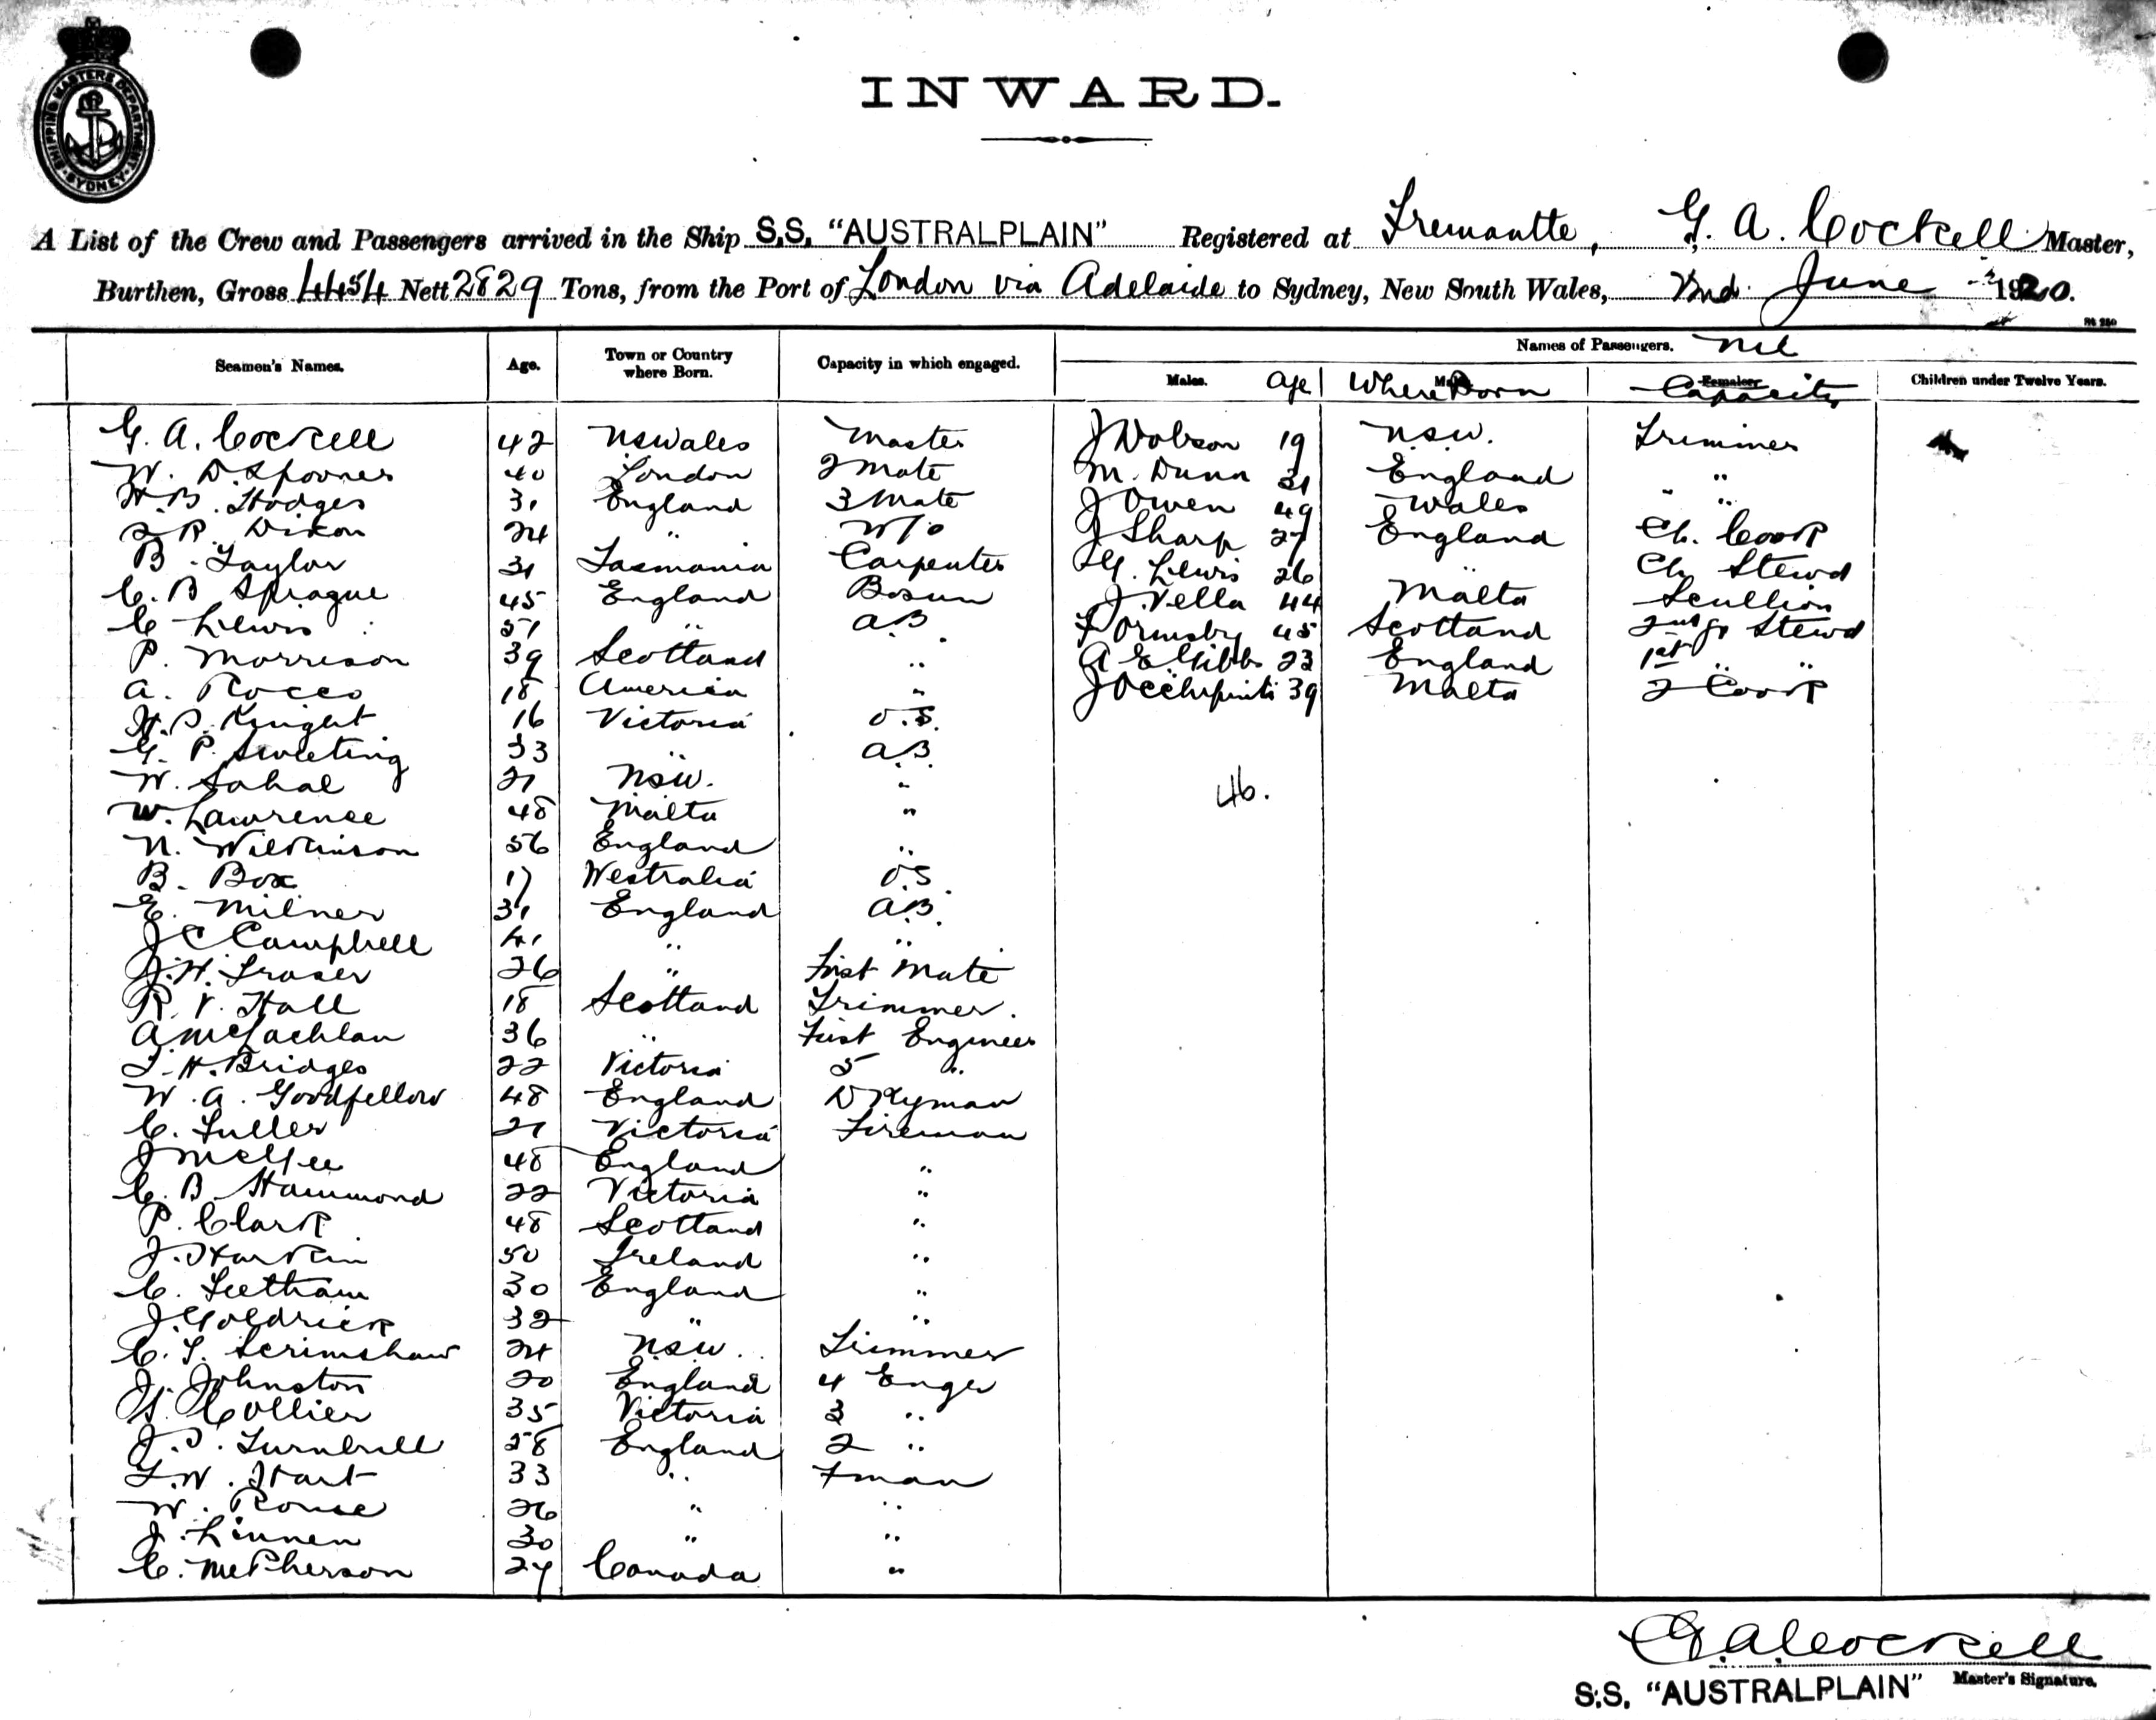 SHIPPING MASTERS DEPARTMENT SYDNEY
INWARD.
A List of the Crew and Passengers arrived in the Ship S.S. "AUSTRALPLAIN" Registered at Fremantle, G. A. Cockell Master,
Burthen, Gross 4454 Nett 2829 Tons, from the Port of London via Adelaide to Sydney, New South Wales, 2nd June 1920.
Seamen's Names. Age. Town or Country where Born. Capacity in which engaged. Names of Passengers. Nil
Males. Age Where Born Capacity Children under Twelve Years.
G. A. Cockell 42 NSWales Master J Dobson 19 N.S.W. Trimmer
W. D. Spooner 40 London 2 Mate M. Dunn 31 England "
H. B. Hodges 31 England 3 Mate J Owen 49 Wales " "
R. Dixon 24 " W/o J Sharp 27 England Ch. Cook
B. Taylor 31 Tasmania Carpenter G. Lewis 26 " Ch Stewd
C. B Sprague 45 England Bosun J. Vella 44 Malta Scullion
C Lewis 51 " AB Ormsby 45 Scotland 2nd Stewd
P. Morrison 39 Scotland " A E Gibbs 23 England 1st " "
A. Rocco 18 America " J Occhipinti 39 Malta 2 Cook
H. S. Knight 16 Victoria O.S.
G. P. Sweeting 33 " A.B.
W. Sahal 21 NSW. "
W. Lawrence 48 Malta "
N. Wilkinson 56 England "
B. Box 17 Westralia O.S
E. Milner 31 England A.B.
J C Campbell 41 " "
J. H. Fraser 26 " First Mate
R. V. Hall 18 Scotland Trimmer.
A McLachlan 36 " First Engineer
T. H. Bridges 22 Victoria 5 "
W. A. Goodfellow 48 England DKyman
C. Fuller 21 Victoria Fireman
J McGee 48 England "
C. B. Hammond 22 Victoria "
P. Clark 48 Scotland "
J. Harkin 50 Ireland "
C. Leetham 30 England "
J. Goldrick 32 " "
C. T. Scrimshaw 24 N.S.W. Trimmer
J. Johnston 20 England 4 Enger
H. Collier 35 Victoria 3 "
J. S. Turnbull 28 England 2 "
T. W. Hart 33 " Fman
W. Rouse 26 " "
J. Linnen 30 " "
C. McPherson 27 Canada "
46.
G. A. Cockell
S.S. "AUSTRALPLAIN" Master's Signature.